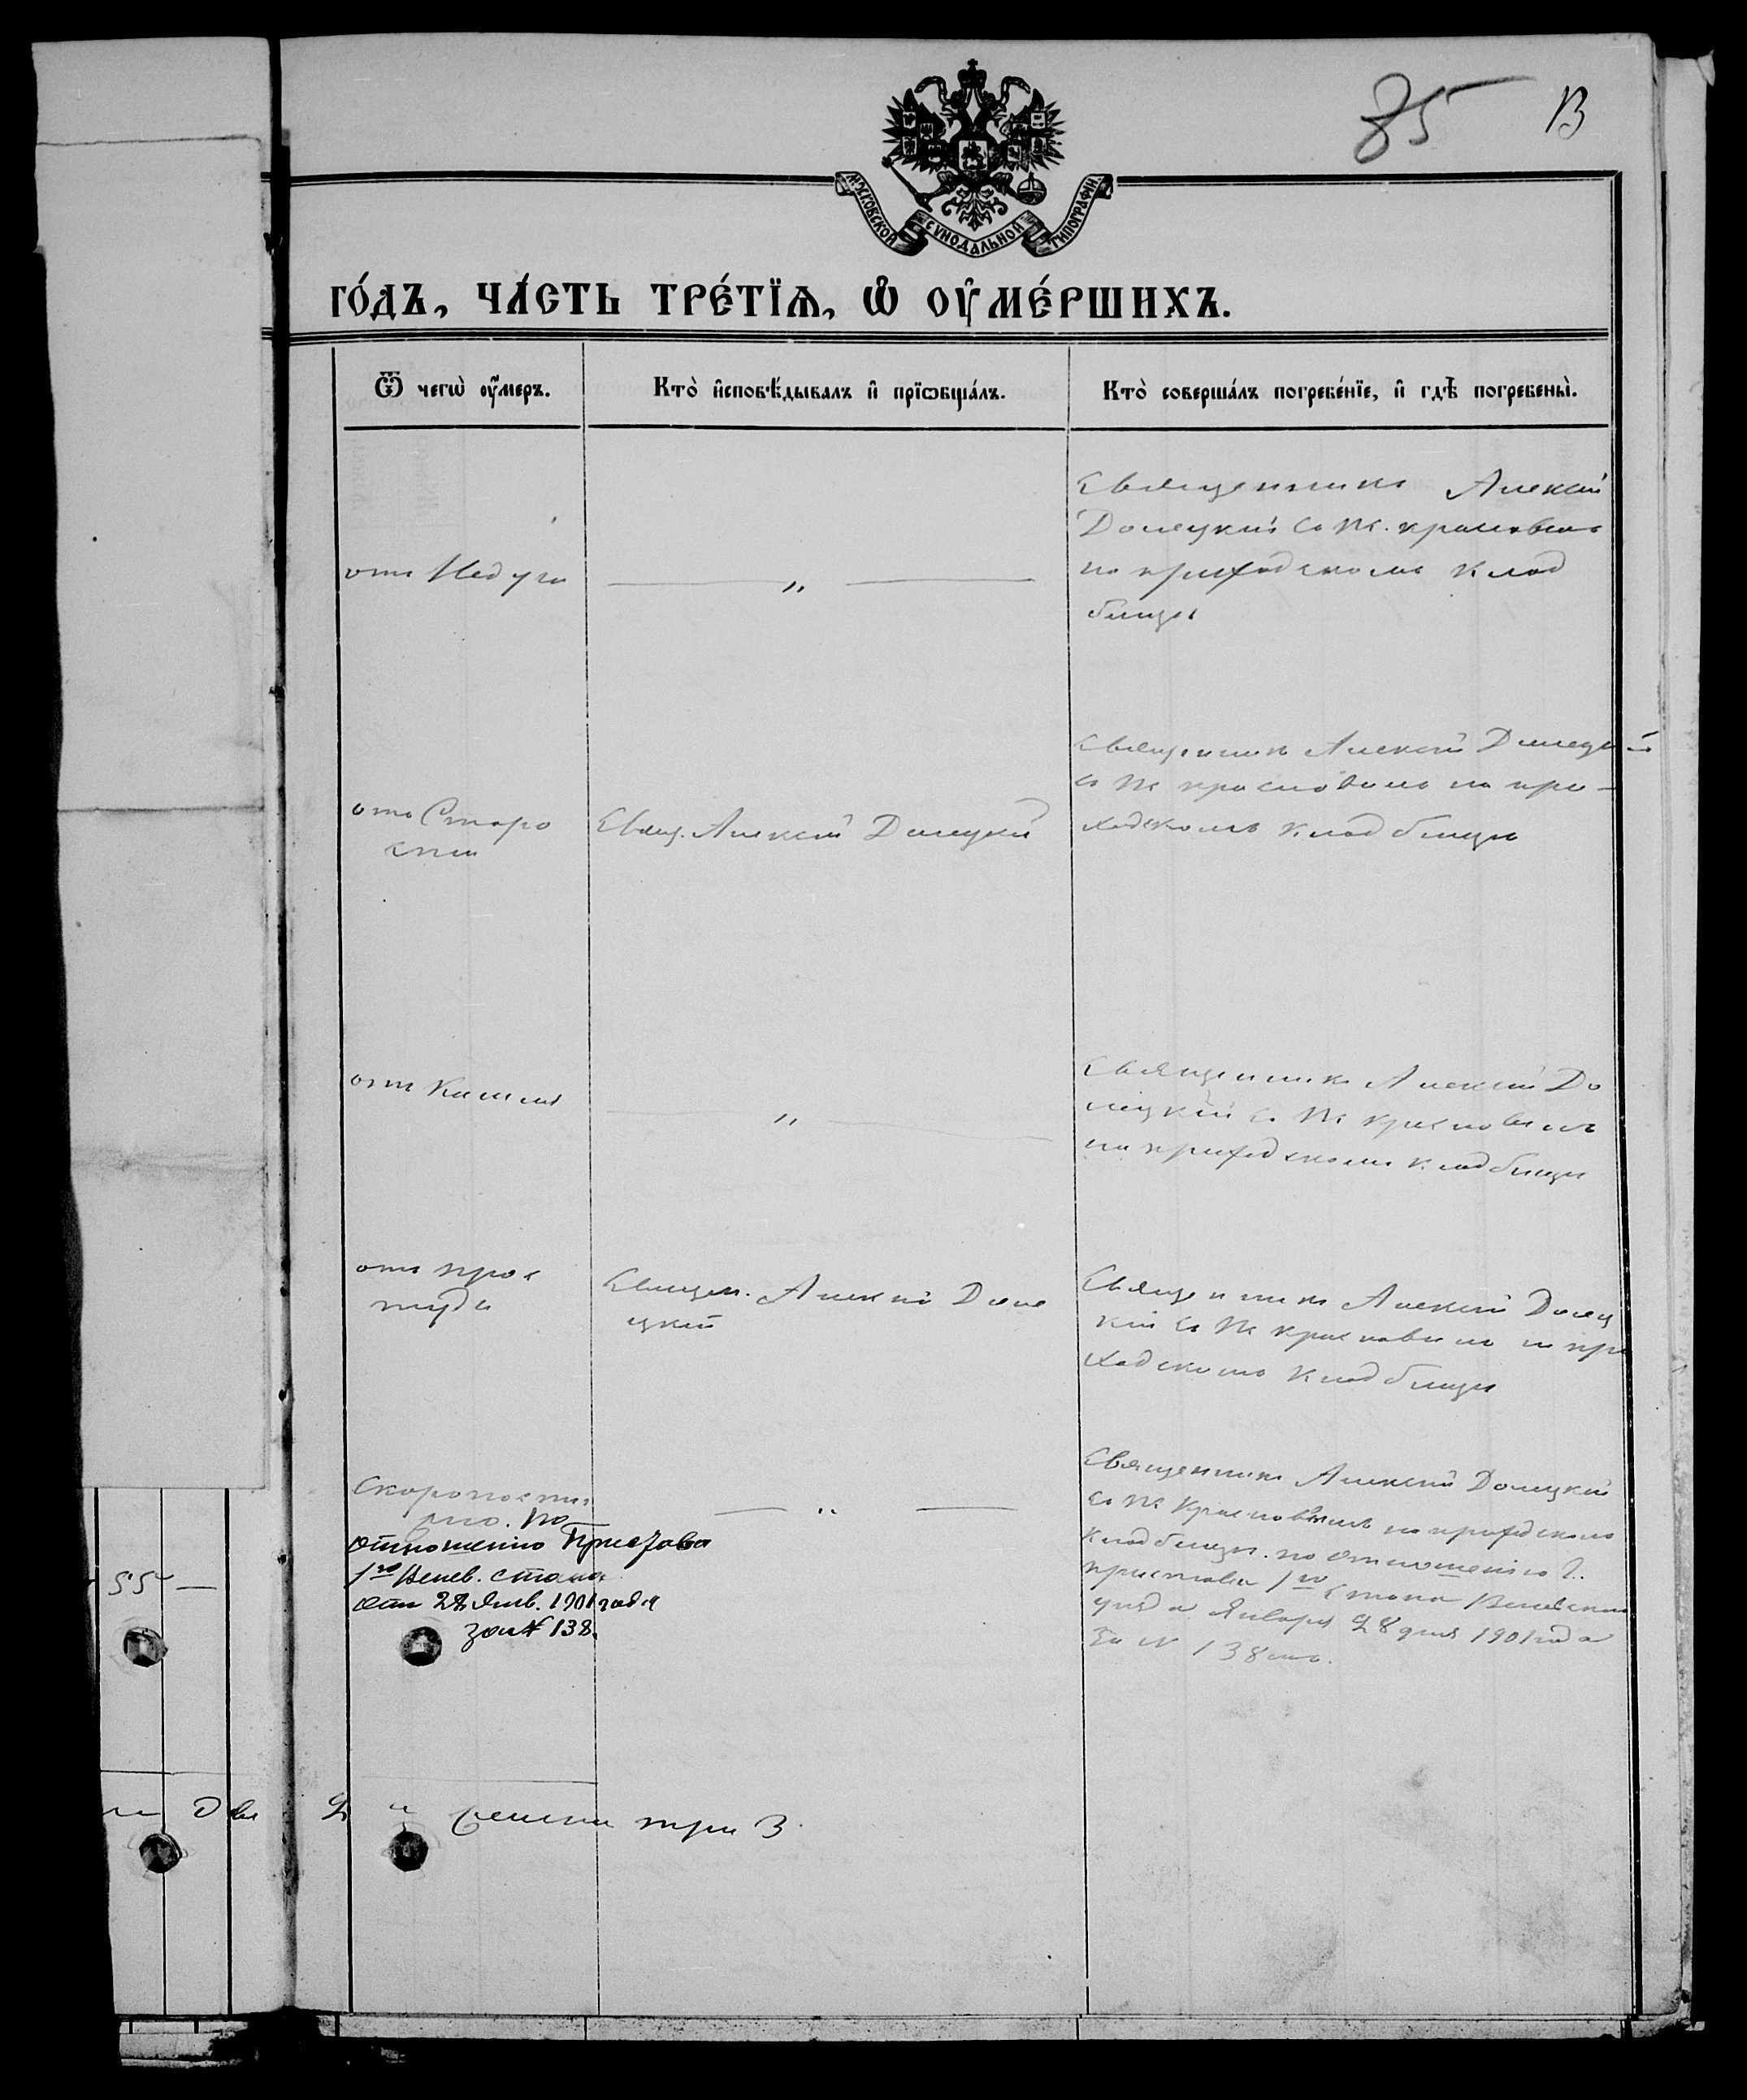 85 В
МОСКОВСКОЙ СѴНОДАЛЬНОЙ ТИПОГРАФІИ.
ГО́ДЪ, ЧА́СТЬ ТРЕ́ТЇѦ, Ѽ ОУ҆МЕ́РШИХЪ.
Ѿ чегѡ̀ оу҆́меръ.
Кто̀ и҆сповѣ́дывалъ и҆ прїѻбща́лъ.
Кто̀ соверша́лъ погребе́нїе, и҆ гдѣ̀ погребены̀.
отъ Недуга
— „ —
Священникъ Алексій
Долецкій съ пс.
на приходскомъ клад
бищѣ
отъ Старо
сти
Свящ. Алексій Долецкій
Священникъ Алексій Долецкій
съ пс. на при-
ходскомъ кладбищѣ
отъ Кашля
— „ —
Священникъ Алексій До
лецкій съ пс.
на приходскомъ кладбищѣ
отъ прос
туды
Священ. Алексій Доле
цкій
Священникъ Алексій Долец
кій съ пс. на при
ходскомъ кладбищѣ
Скоропости
жно. По
отношенію Пристава
1го Венев. стана
отъ 28 Янв. 1901 года
за № 138.
— „ —
Священникъ Алексій Долецкій
съ пс. на приходскомъ
кладбищѣ. по отношенію Г.
пристава 1го стана Веневскаго
уѣзда Января 28 дня 1901 года
за № 138мъ.
55 —
два 2 „ женска три 3.